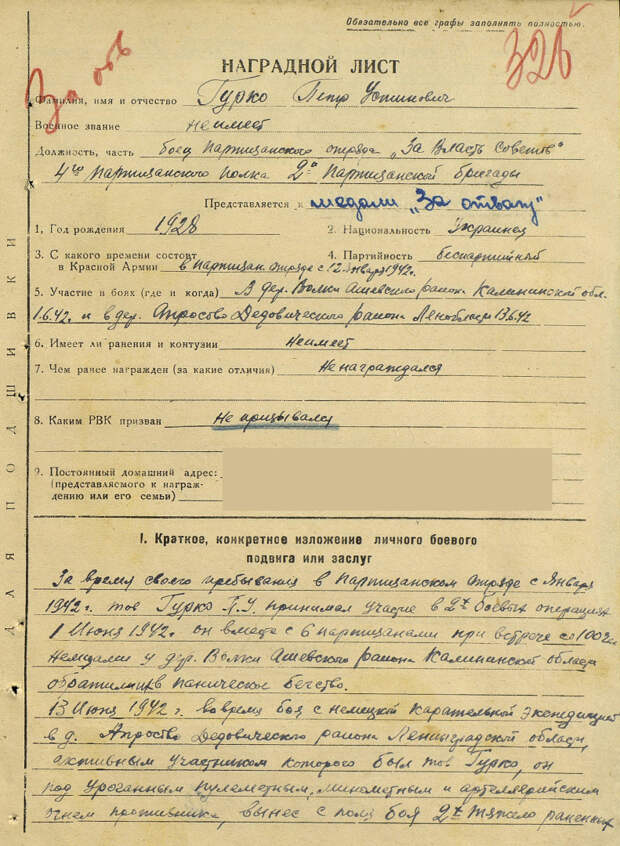 Обязательно все графы заполнять полностью.
За отв
326
НАГРАДНОЙ ЛИСТ
Фамилия, имя и отчество Гурко Петр Устинович
Военное звание неимеет
Должность, часть боец партизанского отряда „За Власть Советов"
4го Партизанского полка 2й Партизанской бригады
Представляется к медали „За отвагу"
1. Год рождения 1928 2. Национальность Украинец
3. С какого времени состоит
в Красной Армии в партизан. отряде с 12 января 1942. 4. Партийность беспартийный
5. Участие в боях (где и когда) В дер. Волки Ашевского района Калининской обл.
1.6.42. и в дер. Апросьево Дедовического района Ленобласти 13.6.42
6. Имеет ли ранения и контузии Неимеет
7. Чем ранее награжден (за какие отличия) Ненаграждался
8. Каким РВК призван Не призывался
9. Постоянный домашний адрес:
(представляемого к награж-
дению или его семьи)
ДЛЯ ПОДШИВКИ
I. Краткое, конкретное изложение личного боевого
подвига или заслуг
За время своего пребывания в партизанском отряде с Января
1942г. тов Гурко П.У. принимал участие в 2х боевых операциях
1 Июня 1942г. он вместе с 6 партизанами при встрече со 100
немцами у дер. Волки Ашевского района Калининской области
обратились в паническое бегство.
13 Июня 1942г. вовремя боя с немецкой карательной Экспедицией
в д. Дедовического района Ленинградской области,
активным участником которого был тов Гурко, он
под ураганным пулеметным, минометным и артелерийским
огнем противника, вынес с поля боя 2х тяжело раненных